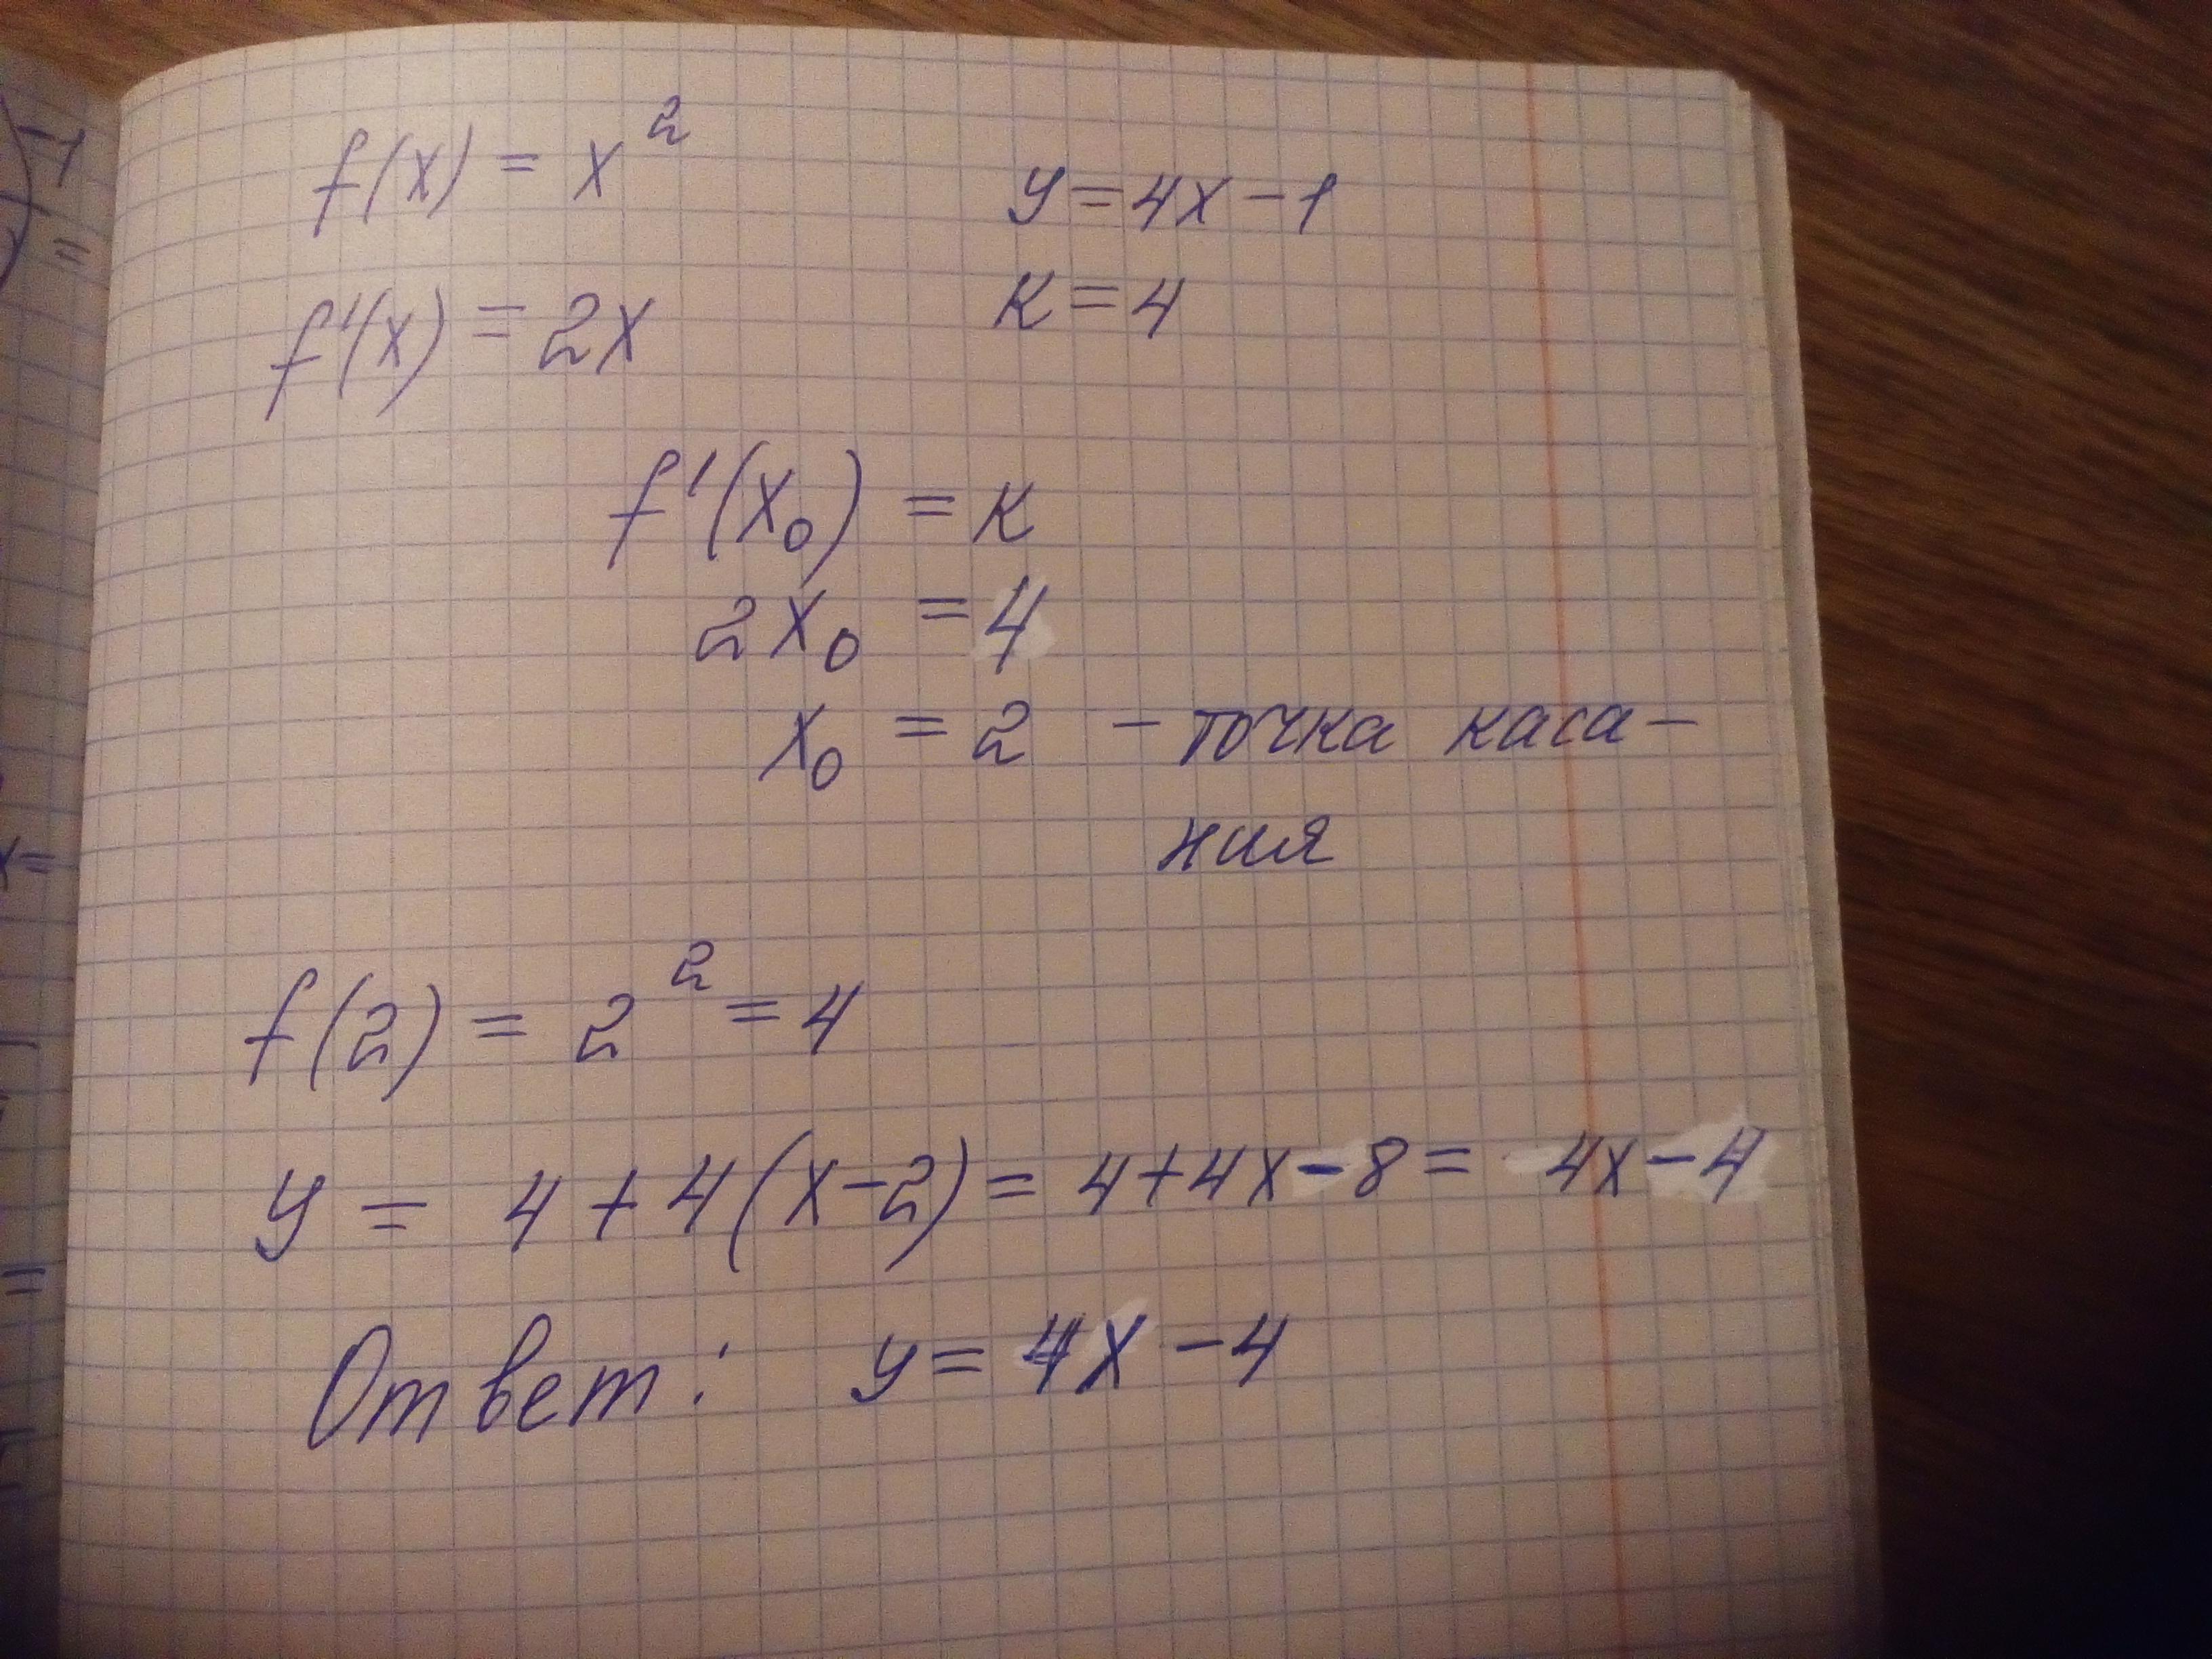 f(x) = x²
y = 4x - 1
f'(x) = 2x
к = 4
f'(x₀) = к
2x₀ = 4
x₀ = 2 - точка каса-
ния
f(2) = 2² = 4
y = 4 + 4(x-2) = 4+4x-8 = 4x-4
Ответ: y = 4x - 4